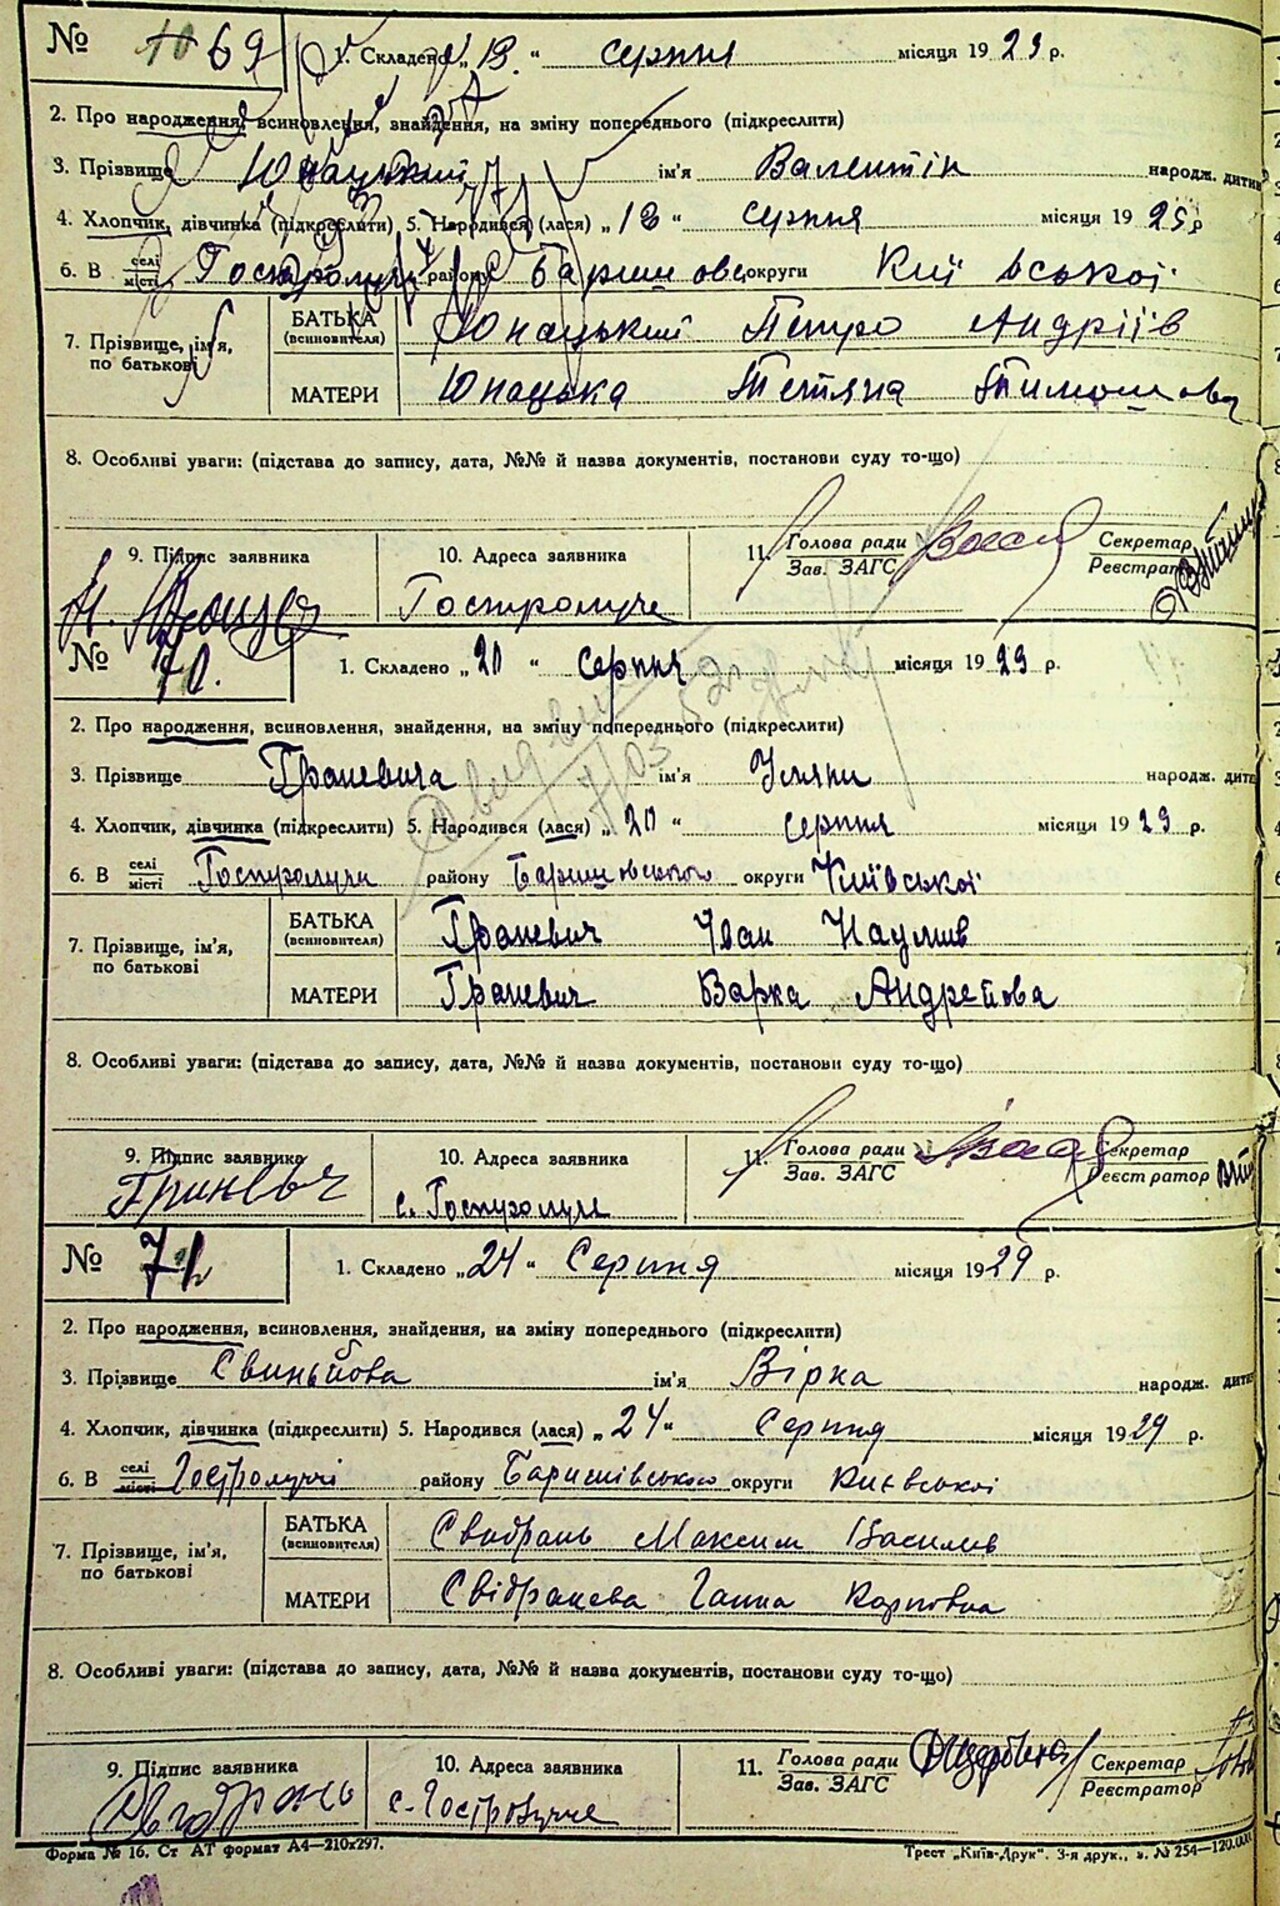 № 69 1. Складено „18.“ серпня місяця 1929 р.
2. Про народження, всиновлення, знайдення, на зміну попереднього (підкреслити)
3. Прізвище Юнацький ім'я Валентін народж. дитини
4. Хлопчик, дівчинка (підкреслити) 5. Народився (лася) „18“ серпня місяця 1929 р
6. В селі місті району Баришовс округи Київської
7. Прізвище, ім'я, по батькові БАТЬКА (всиновителя) Юнацький Петро Андріїв
МАТЕРИ Юнацька Тетяна Тимошова
8. Особливі уваги: (підстава до запису, дата, №№ й назва документів, постанови суду то-що)
9. Підпис заявника 10. Адреса заявника 11. Голова ради Зав. ЗАГС Секретар Реєстратор
Гостролуче
№ 70. 1. Складено „20“ серпня місяця 1929 р.
2. Про народження, всиновлення, знайдення, на зміну попереднього (підкреслити)
3. Прізвище ім'я народж. дити
4. Хлопчик, дівчинка (підкреслити) 5. Народився (лася) „20“ серпня місяця 1929 р.
6. В селі місті Гостролучи району Баришовського округи Київської
7. Прізвище, ім'я, по батькові БАТЬКА (всиновителя) Іван Наумів
МАТЕРИ Варка Андреїова
8. Особливі уваги: (підстава до запису, дата, №№ й назва документів, постанови суду то-що)
9. Підпис заявника 10. Адреса заявника 11. Голова ради Зав. ЗАГС Секретар Реєстратор
с. Гостролуче
№ 71 1. Складено „24“ Серпня місяця 1929 р.
2. Про народження, всиновлення, знайдення, на зміну попереднього (підкреслити)
3. Прізвище ім'я Вірка народж. дити
4. Хлопчик, дівчинка (підкреслити) 5. Народився (лася) „24“ Серпня місяця 1929 р.
6. В селі місті Гостролуччі району Баришівського округи Киевської
7. Прізвище, ім'я, по батькові БАТЬКА (всиновителя) Свидрань Максим Василів
МАТЕРИ Свідранева Ганна Карповна
8. Особливі уваги: (підстава до запису, дата, №№ й назва документів, постанови суду то-що)
9. Підпис заявника 10. Адреса заявника 11. Голова ради Зав. ЗАГС Секретар Реєстратор
Свидрань с. Гостролучче
Форма № 16. Ст АТ формат А4—210х297. Трест „Київ-Друк". 3-я друк., з. № 254—120.000